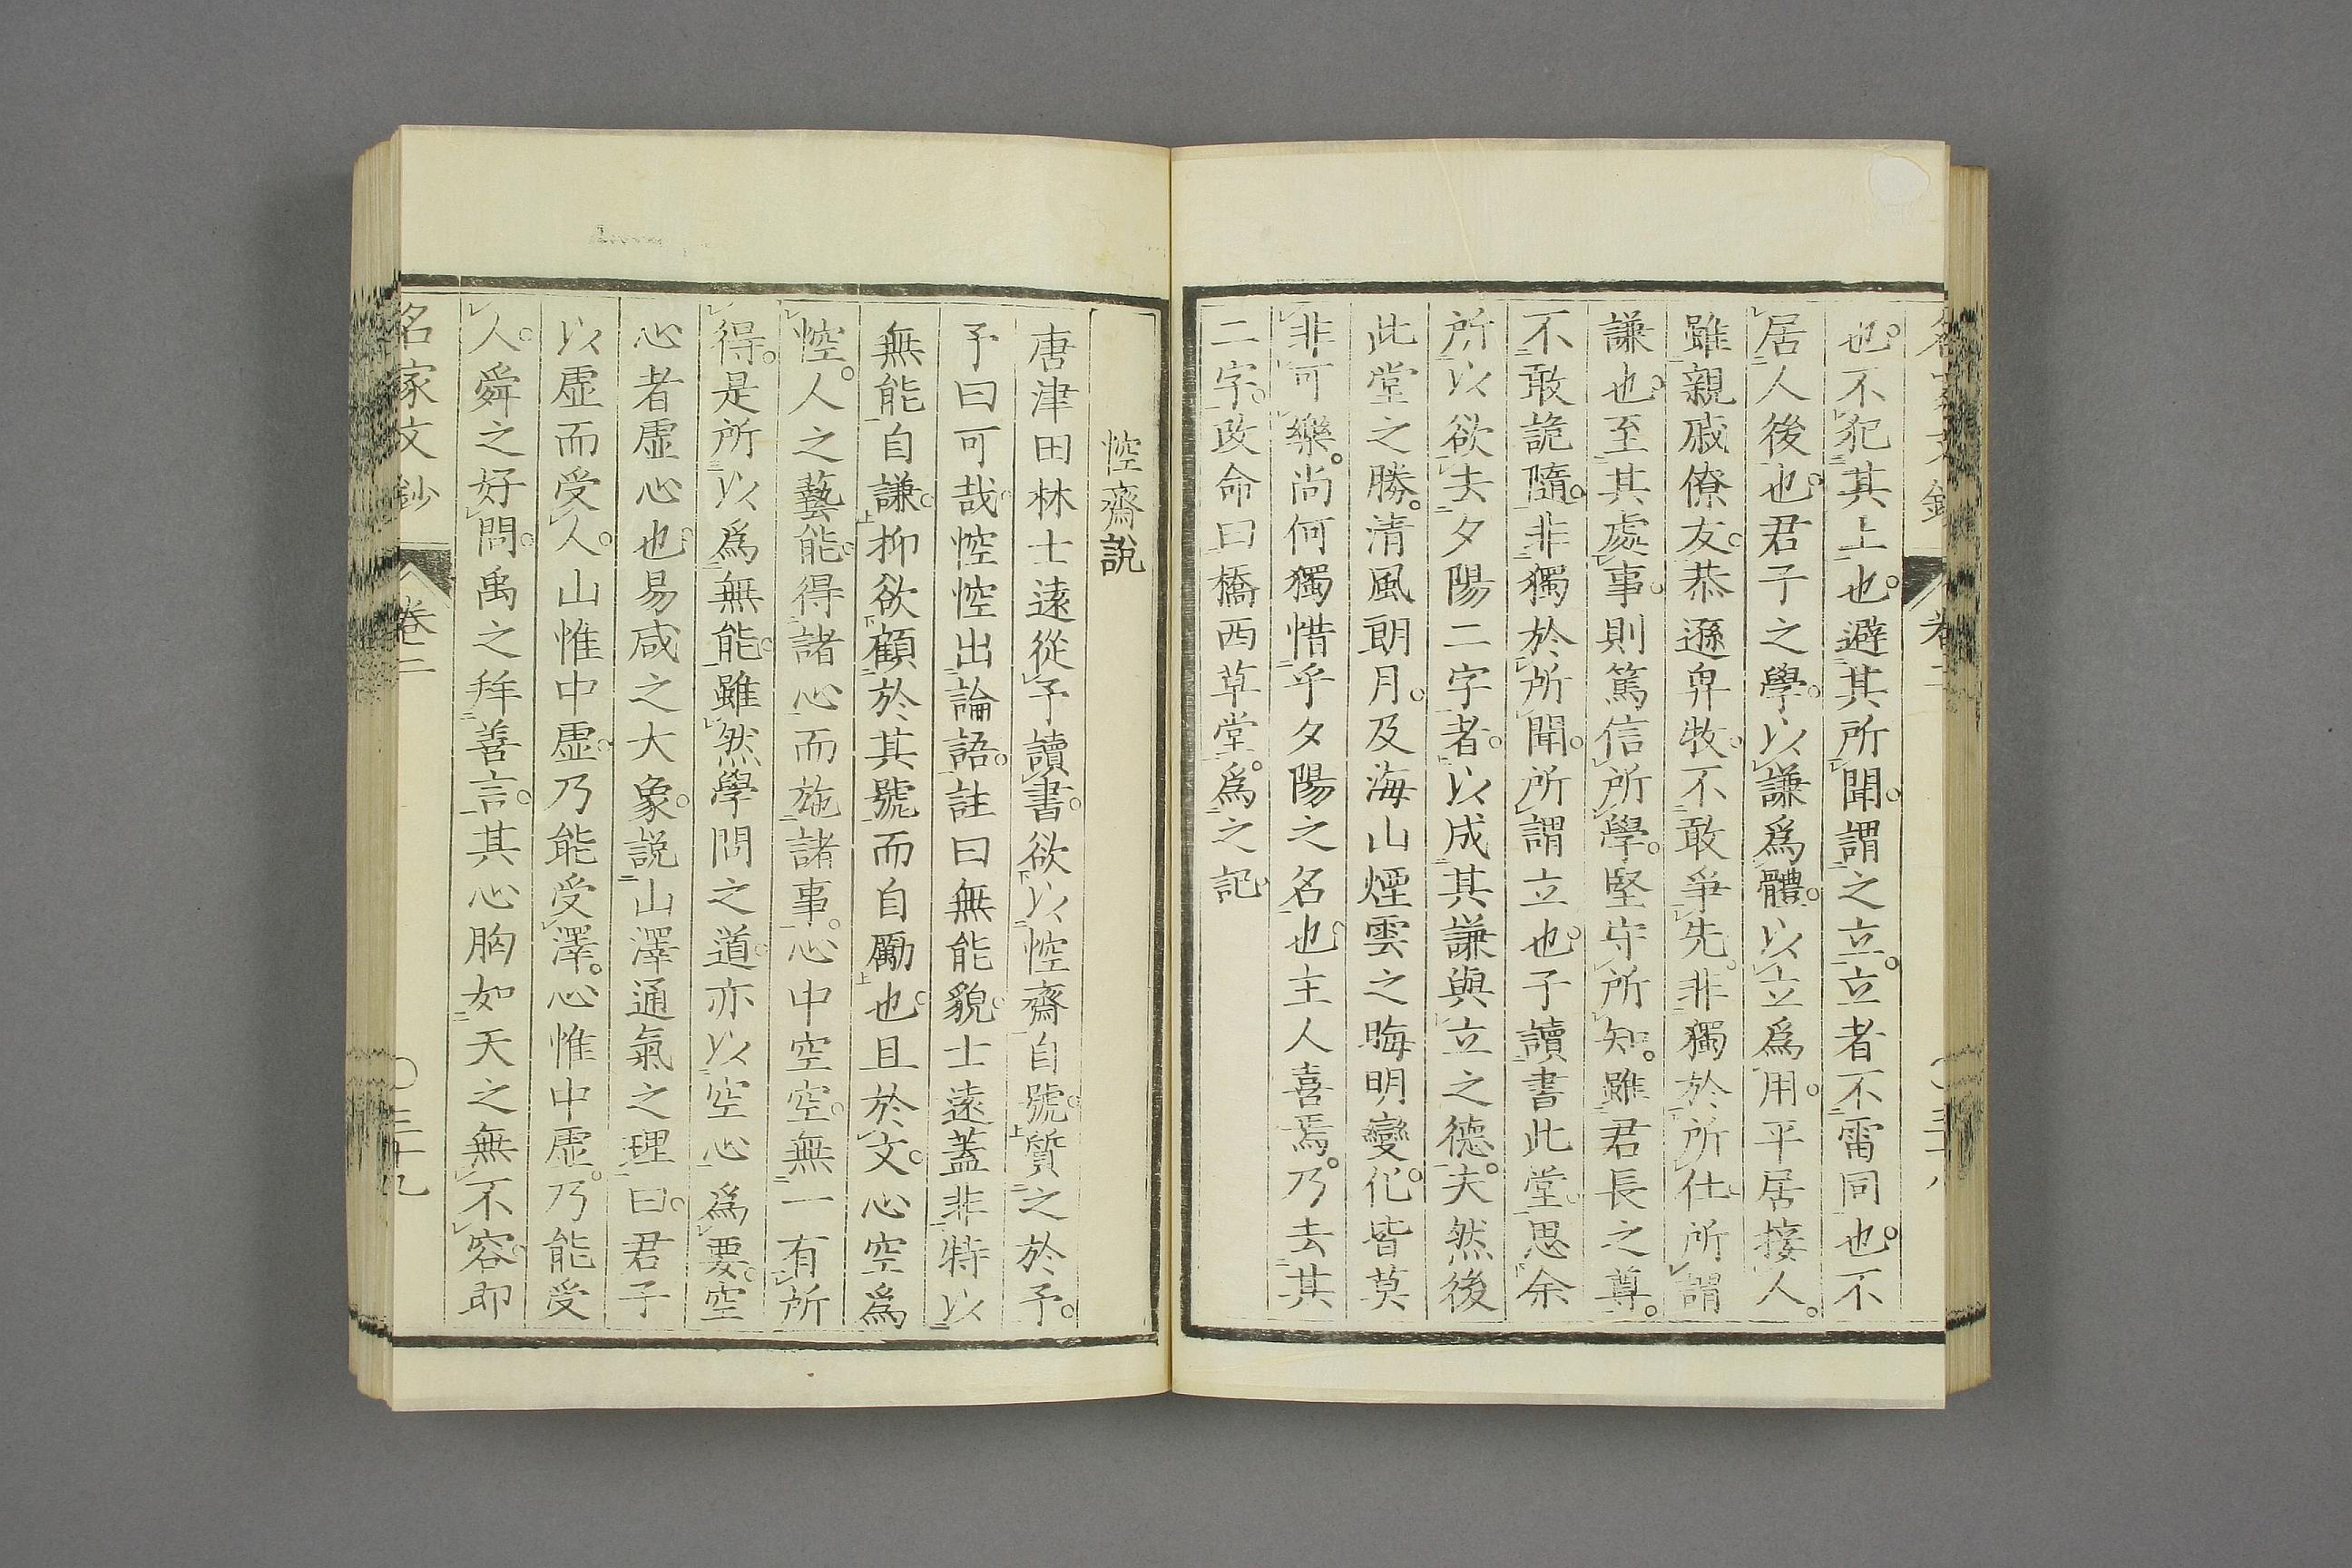 也。不犯其上也。避其所聞。謂之立。立者不雷同也。不
居人後也。君子之學。以謙爲體。以立爲用。平居接人。
雖親戚僚友。恭遜卑牧。不敢爭先。非獨於所仕。所謂
謙也。至其處事。則篤信所學。堅守所知。雖君長之尊。
不敢詭隨。非獨於所聞。所謂立也。子讀書此堂。思余
所以欲去夕陽二字者。以成其謙與立之德。夫然後
此堂之勝。清風朗月。及海山煙雲之晦明變化。皆莫
非可樂。尚何獨惜乎夕陽之名也。主人喜焉。乃去其
二字。改命曰橋西草堂。爲之記。
悾齋說
唐津田林士遠從予讀書。欲以悾齋自號。質之於予。
予曰可哉。悾悾出論語。註曰無能貌。士遠蓋非特以
無能自謙。抑欲顧於其號而自勵也。且於文。心空爲
悾。人之藝能。得諸心而施諸事。心中空空。無一有所
得。是所以爲無能。雖然學問之道。亦以空心爲要。空
心者虛心也。易咸之大象。説山澤通氣之理曰。君子
以虛而受人。山惟中虛。乃能受澤。心惟中虛。乃能受
人。舜之好問。禹之拜善言。其心胸如天之無不容。即
名家文鈔 卷二 〇三十九